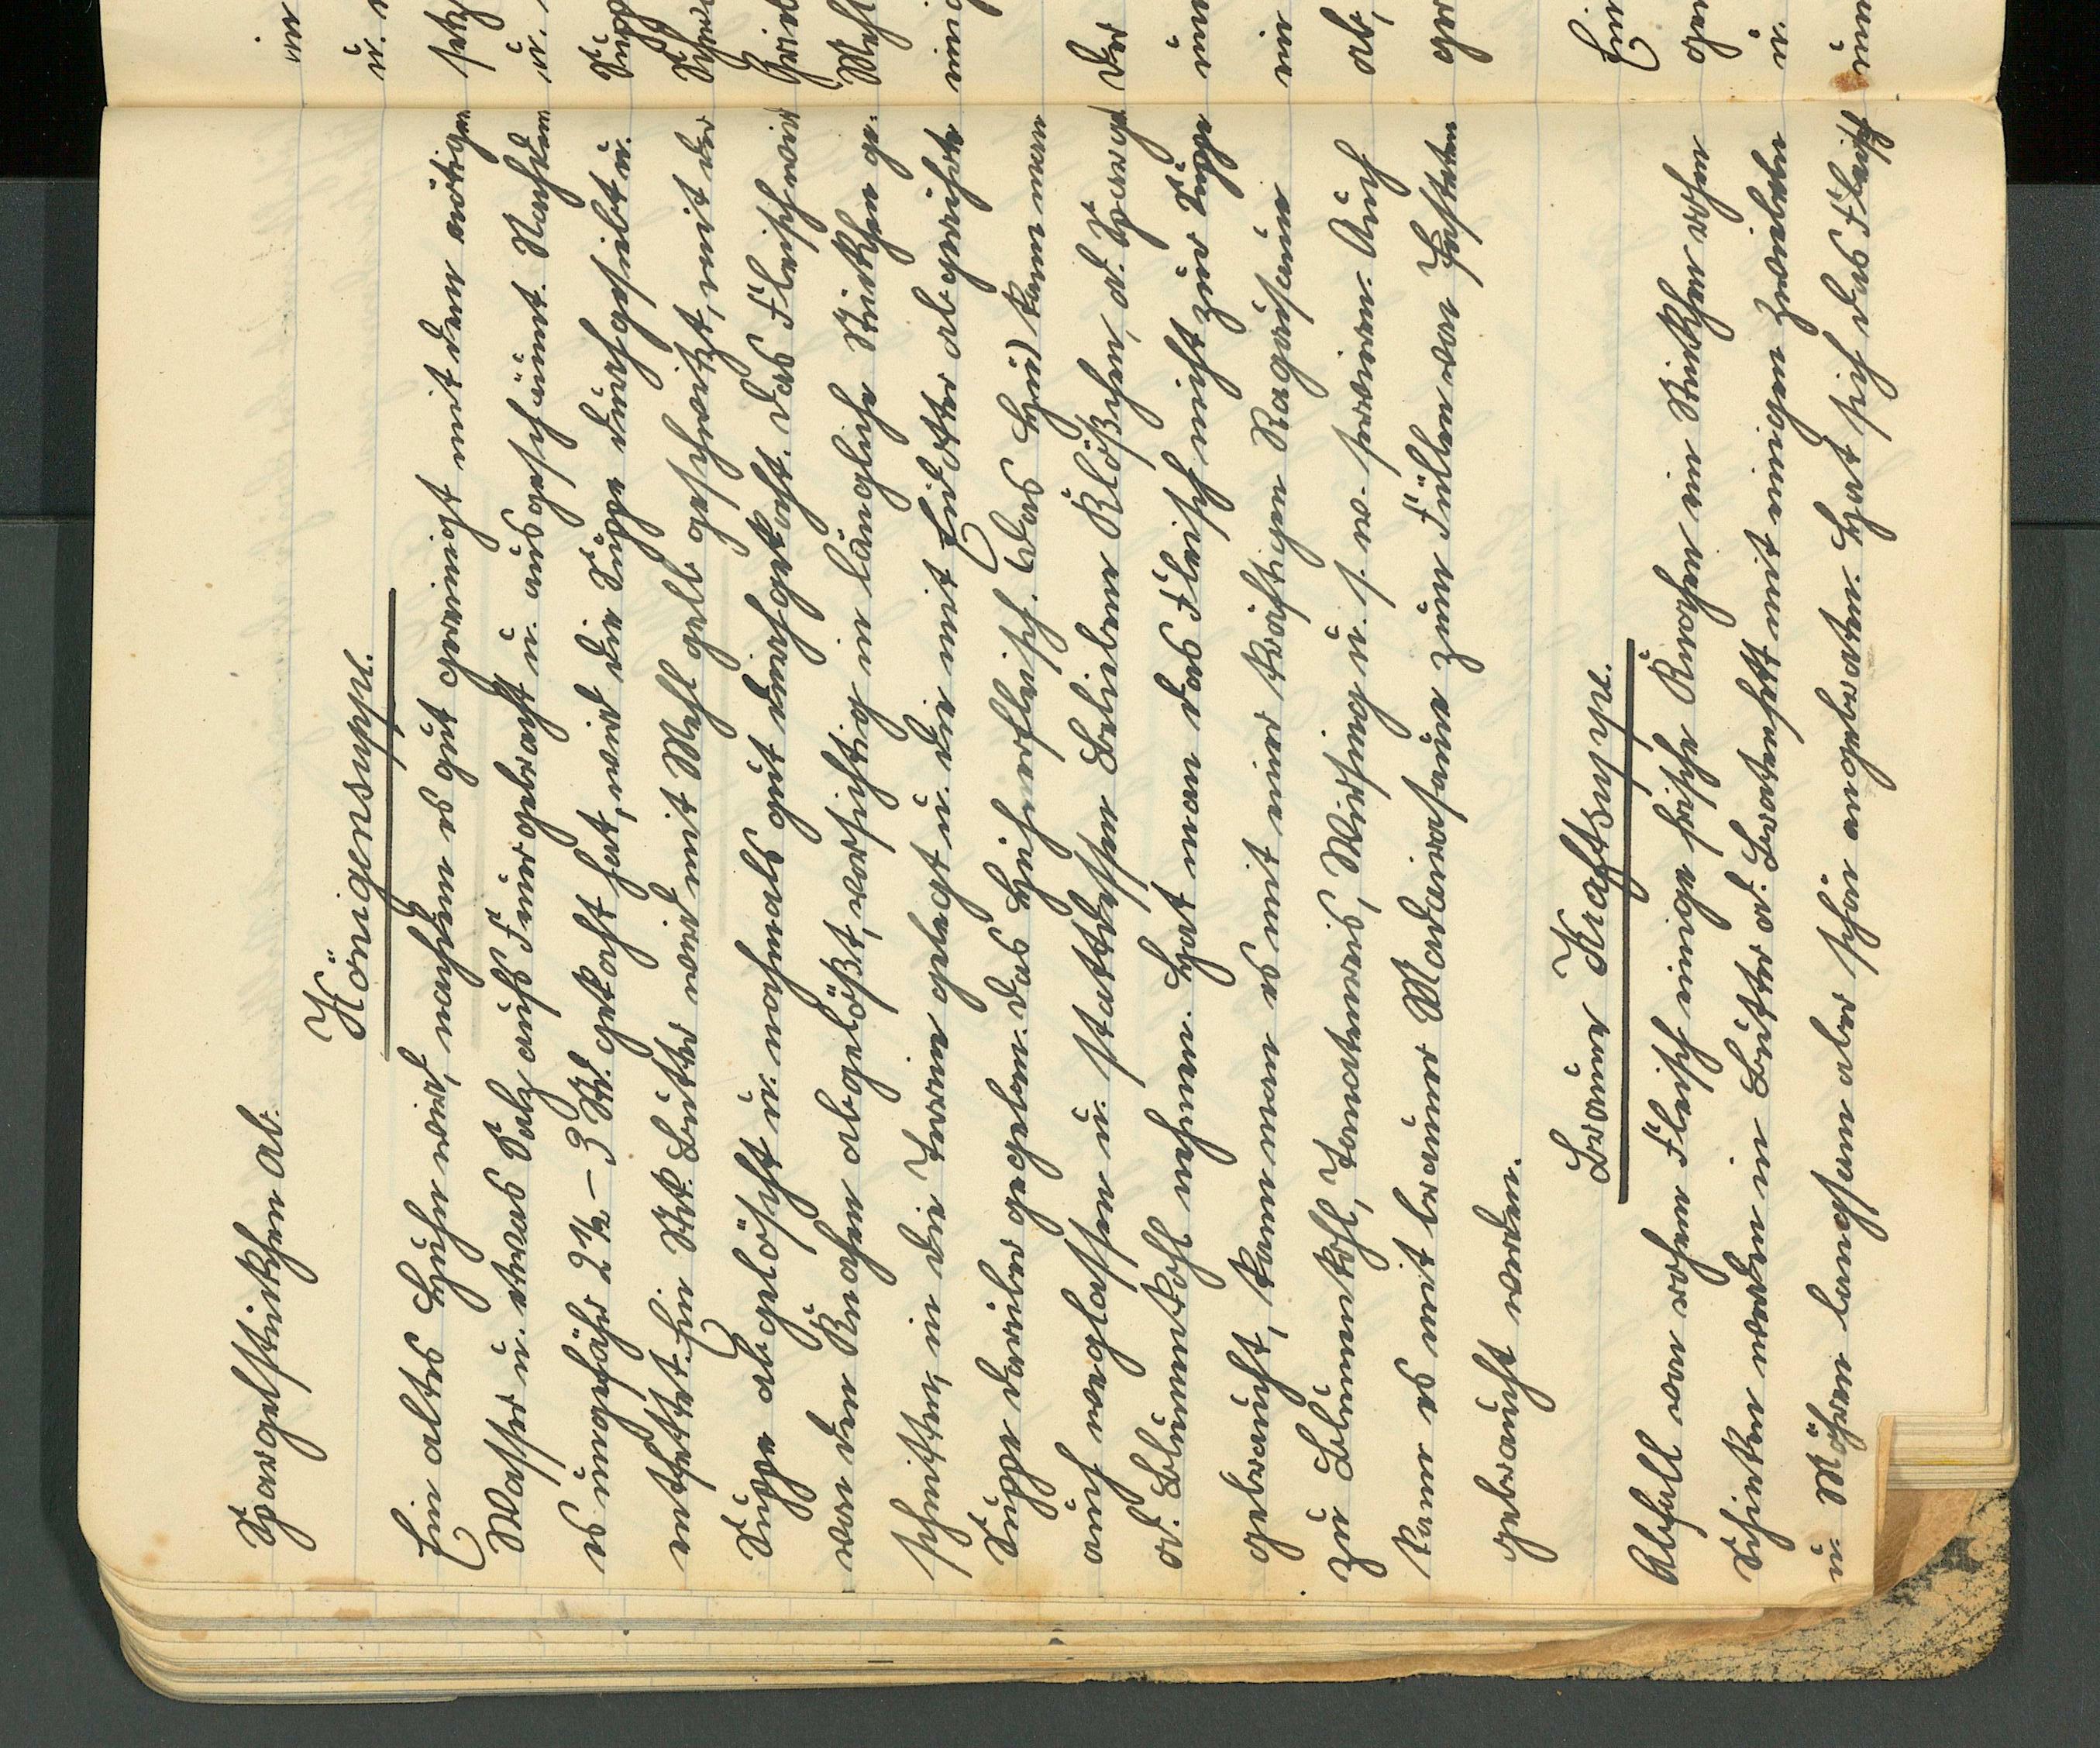 Spargelstückchen ab.
Königensuppe.
Ein altes Huhn wird, nachdem es gut gereinigt mit dem nötigen
Wasser u. etwas Salz aufs Feuer gebracht u. ausgeschäumt. Nachdem
es ungefähr 2½ – 3 Std. gekocht hat, wird die Suppe durchgesiebt u.
entfettet. Ein Stck. Butter wird mit Mehl gelb geschwitzt, mit der
Suppe abgelöscht u. nochmals gut durchgekocht. Das Fleisch wird
von den Knochen abgelößt, vorsichtig in längliche Stückchen ge-
schnitten, in die Terrine gelegt u. die mit Eidotter abgerührte
Suppe darüber gegeben. Das Hühnerfleisch. (Das Huhn) kann man
auch weglassen u. stattdessen Belieben Klößchen, od. Spargel
od. Blumenkohl nehmen. Hat man das Fleisch nicht zur Suppe
gebraucht, kann man es mit einer kräftigen Ragoutsauce
zu Blumenkohl, Tomatenreis, Wirsing u. s. w. servieren. Auch
kann es mit brauner Madeirasauce zum Füllen von Pasteten
gebraucht werden.
Braune Kraftsuppe.
Abfall von rohem Fleisch einige frische Knochen ein Stückchen rohen
Schinken werden in Butter od. Bratenfett mit einigen Zwiebeln
u. Möhren langsam aber schön angebraten. Hat sich das Fleisch